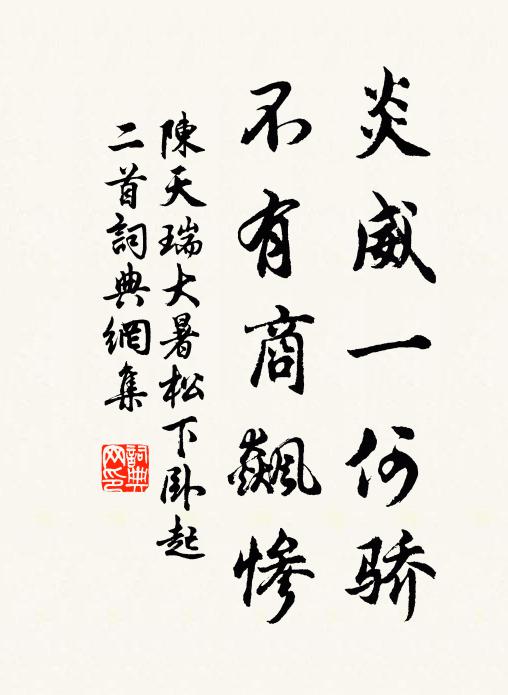 炎威一何骄
不有商飙惨
陳天瑞大暑松下卧起
二首詞典網集
詞典网印